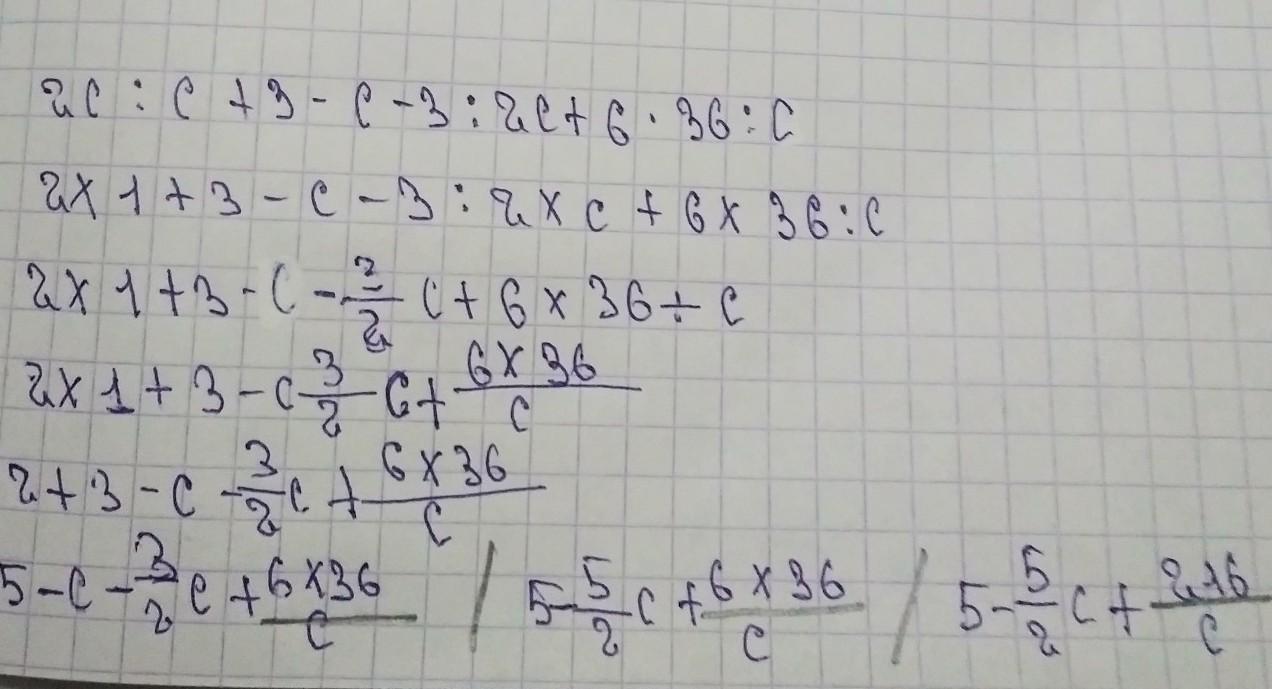 2c : c + 3 - c - 3 : 2c + 6 · 36 : c
2 x 1 + 3 - c - 3 : 2 x c + 6 x 36 : c
2 x 1 + 3 - c - 3/2 c + 6 x 36 ÷ c
2 x 1 + 3 - c 3/2 c + 6 x 36/c
2 + 3 - c - 3/2 c + 6 x 36/c
5 - c - 3/2 c + 6 x 36/c / 5 - 5/2 c + 6 x 36/c / 5 - 5/2 c + 216/c